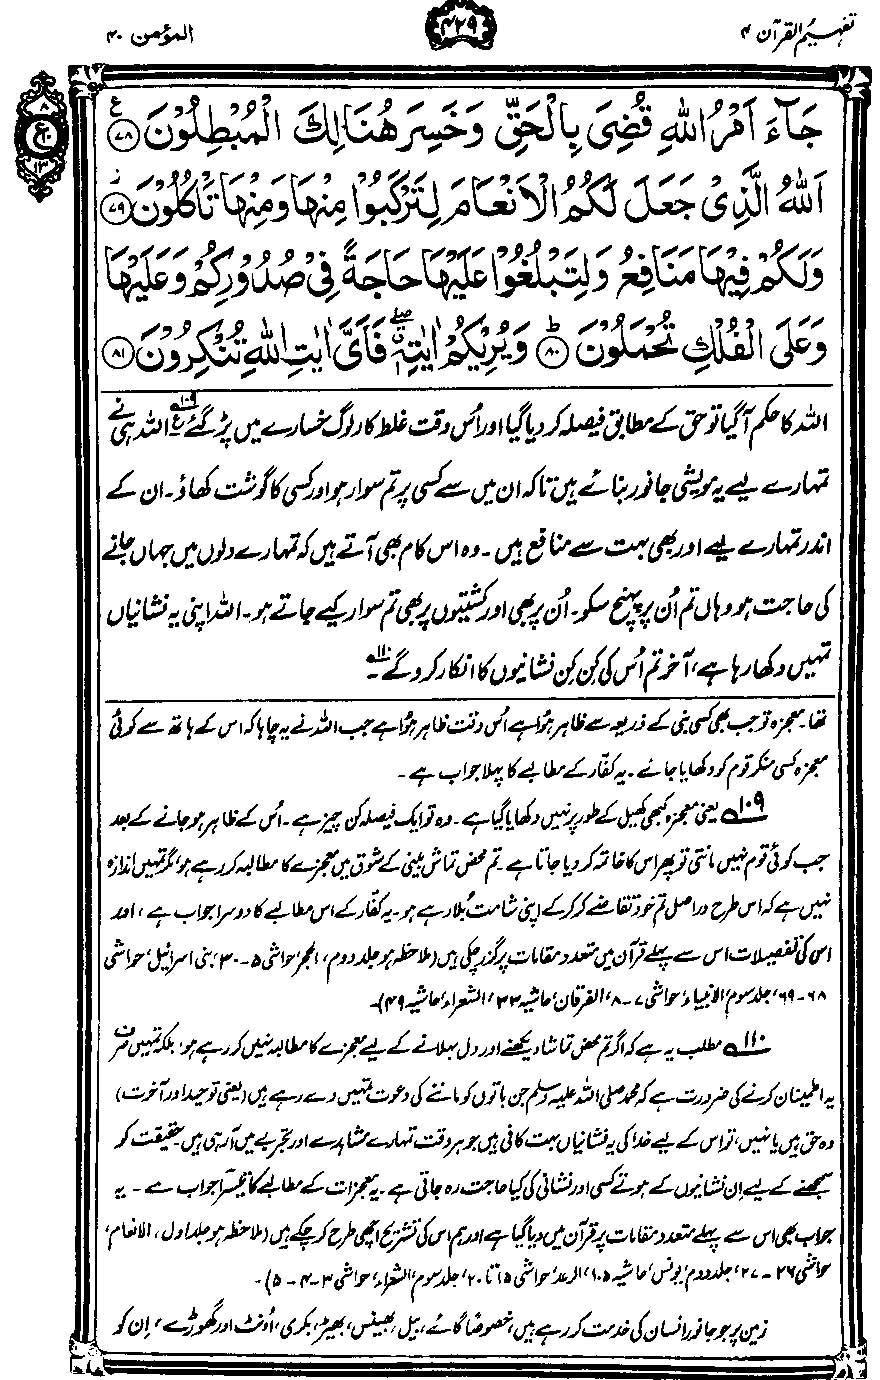 تفہیم القرآن ۴
۴۲۹
المؤمن ۴۰
۸
ع
۱۰
۱۳
جَآءَ اَمْرُ اللّٰهِ قُضِیَ بِالْحَقِّ وَخَسِرَ هُنَالِكَ الْمُبْطِلُوْنَ ﴿۷۸﴾ ع
اَللّٰهُ الَّذِیْ جَعَلَ لَكُمُ الْاَنْعَامَ لِتَرْكَبُوْا مِنْهَا وَمِنْهَا تَاْكُلُوْنَ ﴿۷۹﴾ ز
وَلَكُمْ فِیْهَا مَنَافِعُ وَلِتَبْلُغُوْا عَلَیْهَا حَاجَةً فِیْ صُدُوْرِكُمْ وَعَلَیْهَا
وَعَلَی الْفُلْكِ تُحْمَلُوْنَ ﴿۸۰﴾ ط وَیُرِیْكُمْ اٰیٰتِهٖ ۖ فَاَیَّ اٰیٰتِ اللّٰهِ تُنْكِرُوْنَ ﴿۸۱﴾
اللہ کا حکم آگیا تو حق کے مطابق فیصلہ کر دیا گیا اور اُس وقت غلط کار لوگ خسارے میں پڑ گئے ۱۰۹ ع اللہ ہی نے
تمہارے لیے یہ مویشی جانور بنائے ہیں تاکہ ان میں سے کسی پر تم سوار ہو اور کسی کا گوشت کھاؤ۔ ان کے
اندر تمہارے لیے اور بھی بہت سے منافع ہیں۔ وہ اس کام بھی آتے ہیں کہ تمہارے دلوں میں جہاں جانے
کی حاجت ہو وہاں تم اُن پر پہنچ سکو۔ اُن پر بھی اور کشتیوں پر بھی تم سوار کیے جاتے ہو۔ اللہ اپنی یہ نشانیاں
تمہیں دکھا رہا ہے، آخر تم اُس کی کِن کِن نشانیوں کا انکار کرو گے ۱۱۰۔
تھا۔ معجزہ تو جب بھی کسی نبی کے ذریعہ سے ظاہر ہوُا ہے اُس وقت ظاہر ہوُا ہے جب اللہ نے یہ چاہا کہ اس کے ہاتھ سے کوئی
معجزہ کسی منکر قوم کو دکھایا جائے۔ یہ کفّار کے مطالبے کا پہلا جواب ہے۔
۱۰۹ یعنی معجزہ کبھی کھیل کے طور پر نہیں دکھایا گیا ہے۔ وہ تو ایک فیصلہ کن چیز ہے۔ اُس کے ظاہر ہو جانے کے بعد
جب کوئی قوم نہیں مانتی تو پھر اس کا خاتمہ کر دیا جاتا ہے۔ تم محض تماش بینی کے شوق میں معجزے کا مطالبہ کر رہے ہو، مگر تمہیں اندازہ
نہیں ہے کہ اس طرح دراصل تم خود تقاضے کر کر کے اپنی شامت بُلا رہے ہو۔ یہ کفّار کے اس مطالبے کا دوسرا جواب ہے، اور
اس کی تفصیلات اس سے پہلے قرآن میں متعدد مقامات پر گزر چکی ہیں (ملاحظہ ہو جلد دوم، الحجر، حواشی ۵-۳۰، بنی اسرائیل، حواشی
۶۸-۶۹، جلد سوم، الانبیاء، حواشی ۷-۸، الفرقان، حاشیہ ۳۳، الشعراء، حاشیہ ۴۹)۔
۱۱۰ مطلب یہ ہے کہ اگر تم محض تماشا دیکھنے اور دل بہلانے کے لیے معجزے کا مطالبہ نہیں کر رہے ہو، بلکہ تمہیں صرف
یہ اطمینان کرنے کی ضرورت ہے کہ محمد صلی اللہ علیہ وسلم جن باتوں کو ماننے کی دعوت تمہیں دے رہے ہیں (یعنی توحید اور آخرت)
وہ حق ہیں یا نہیں، تو اس کے لیے خدا کی یہ نشانیاں بہت کافی ہیں جو ہر وقت تمہارے مشاہدے اور تجربے میں آ رہی ہیں۔ حقیقت کو
سمجھنے کے لیے اِن نشانیوں کے ہوتے کسی اور نشانی کی کیا حاجت رہ جاتی ہے۔ یہ معجزات کے مطالبے کا تیسرا جواب ہے۔ یہ
جواب بھی اس سے پہلے متعدد مقامات پر قرآن میں دیا گیا ہے اور ہم اس کی تشریح اچھی طرح کر چکے ہیں (ملاحظہ ہو جلد اول، الانعام،
حواشی ۲۶-۲۷، جلد دوم، یونس، حاشیہ ۱۰۵، الرعد، حواشی ۱۵ تا ۲۰، جلد سوم، الشعراء، حواشی ۳-۴-۵)۔
زمین پر جو جانور انسان کی خدمت کر رہے ہیں، خصوصًا گائے، بیل، بھینس، بھیڑ، بکری، اُونٹ اور گھوڑے، اِن کو